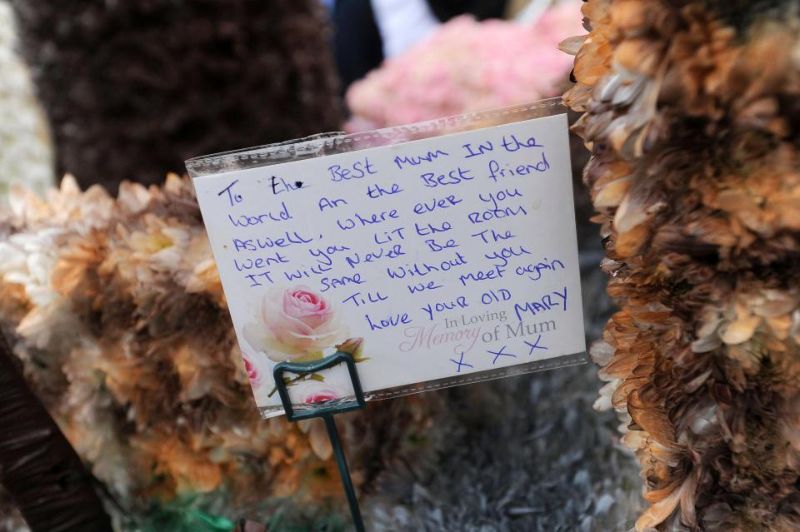 To the BEST MUM IN the
World An the Best friend
ASWELL. Where ever you
Went you LIT the ROOM
IT WILL NEVER BE THE
Same Without you
Till We meet again
Love your OLD MARY
In Loving
Memory of Mum
x x x